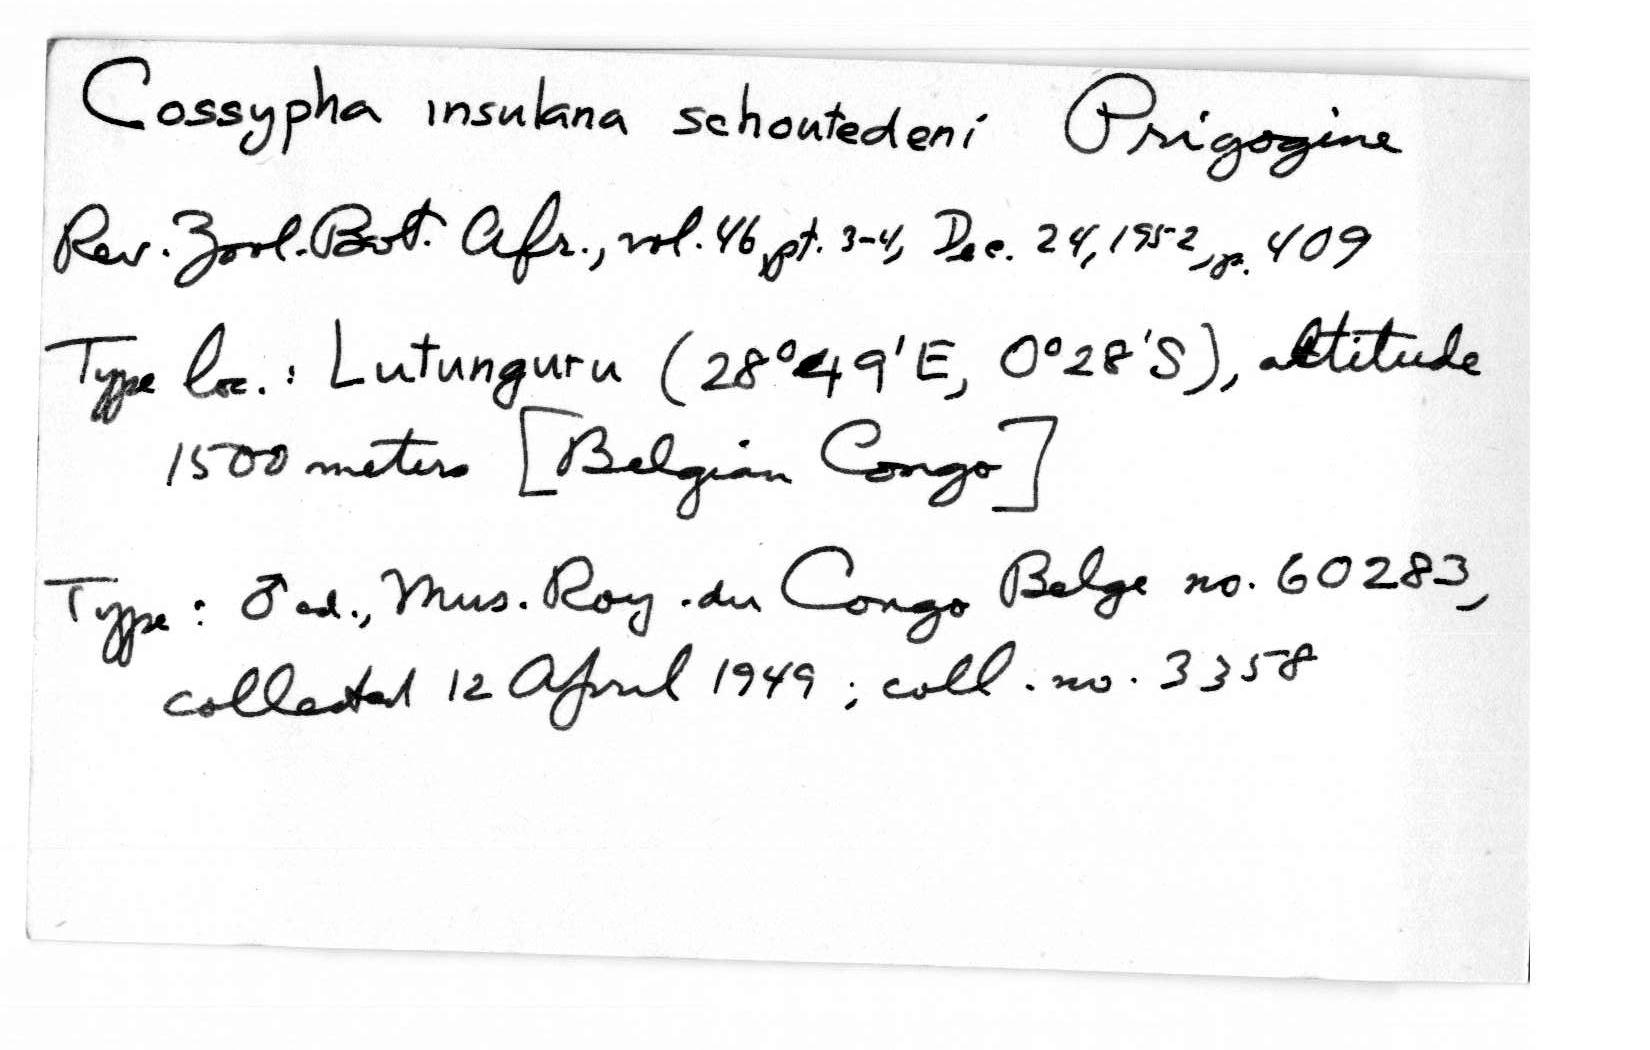 Cossypha insulana schoutedeni Prigogine
Rev. Zool. Bot. Afr., vol. 46, pt. 3-4, Dec. 24, 1952, p. 409
Type loc.: Lutunguru (28°49'E, 0°28'S), altitude
1500 meters [Belgian Congo]
Type: ♂ ad., Mus. Roy. du Congo Belge no. 60283,
collected 12 April 1949; coll. no. 3358